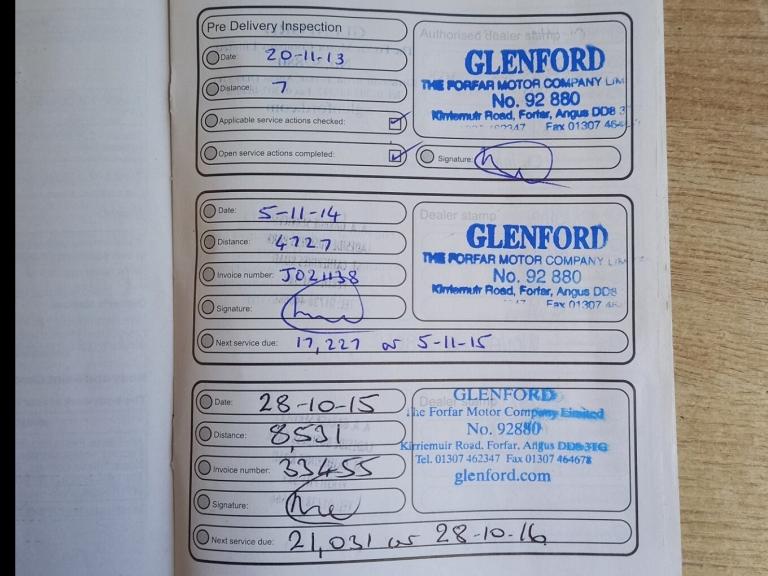 Pre Delivery Inspection
Date: 20-11-13
Distance: 7
Applicable service actions checked:
Open service actions completed:
Authorised dealer stamp
GLENFORD
THE FORFAR MOTOR COMPANY LIM
No. 92 880
Kirriemuir Road, Forfar, Angus DD8 3
Fax 01307 464
Signature:
Date: 5-11-14
Distance: 4727
Invoice number: J021138
Signature:
Dealer stamp
GLENFORD
THE FORFAR MOTOR COMPANY LIM
No. 92 880
Kirriemuir Road, Forfar, Angus DD8
Fax 01307 46
Next service due: 17,227 or 5-11-15
Date: 28-10-15
Distance: 8,531
Invoice number: 33455
Signature:
Dealer stamp
GLENFORD
The Forfar Motor Company Limited
No. 92880
Kirriemuir Road, Forfar, Angus DD8 3TG
Tel. 01307 462347 Fax 01307 464678
glenford.com
Next service due: 21,031 or 28-10-16